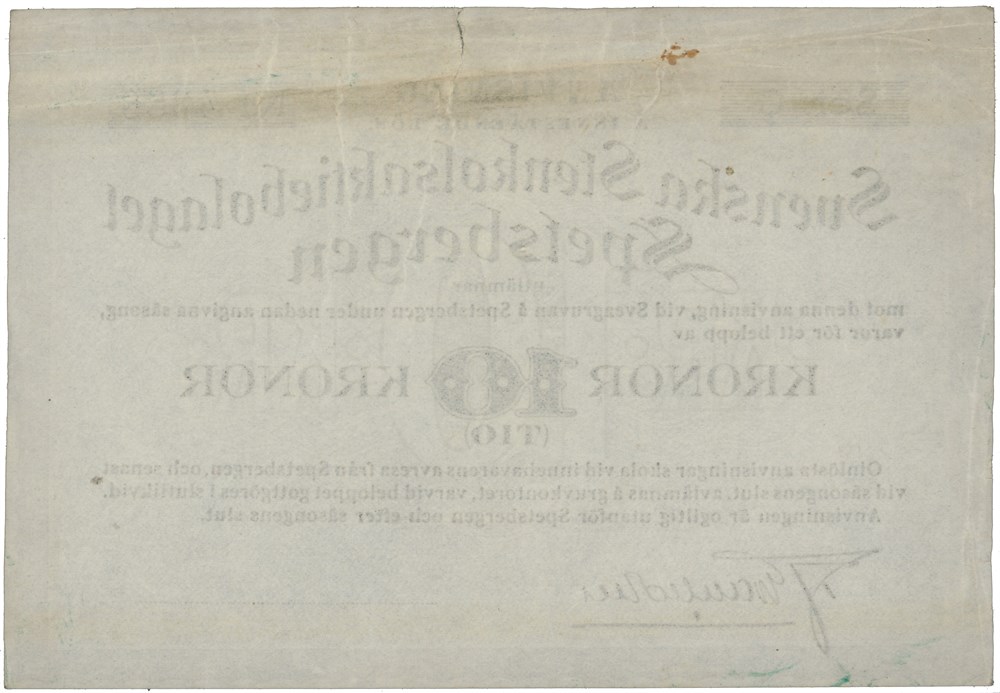 ANVISNING
Å INNESTÅENDE LÖN.
Svenska Stenkolsaktiebolaget
Spetsbergen
utlämnar
mot denna anvisning, vid Sveagruvan å Spetsbergen under nedan angivna säsong,
varor för ett belopp av
KRONOR 10 KRONOR
(TIO)
Oinlösta anvisningar skola vid innehavarens avresa från Spetsbergen, och senast
vid säsongens slut, avlämnas å gruvkontoret, varvid beloppet gottgöres i slutlikvid.
Anvisningen är ogiltig utanför Spetsbergen och efter säsongens slut.